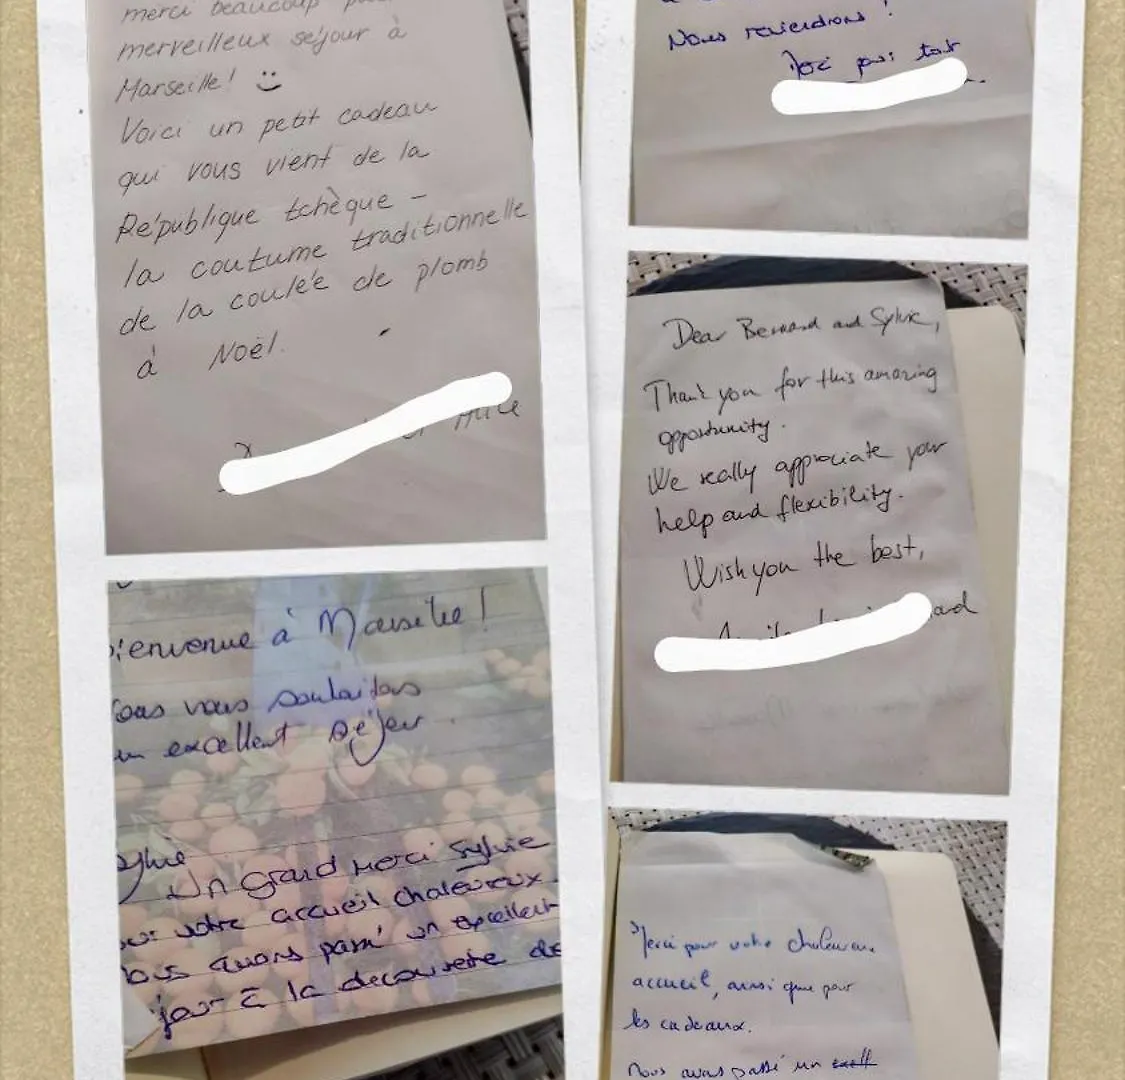 merci beaucoup
merveilleux séjour à
Marseille! :)
Voici un petit cadeau
qui vous vient de la
République tchèque –
la coutume traditionnelle
de la coulée de plomb
à Noël.
ienvenue à Marseille !
ous vous souhaitons
un excellent séjour.
Sylvie
Un grand merci Sylvie
votre accueil chaleureux.
ous avons passé un excellent
jour à la découverte de
Nous reviendrons !
Merci pour tout
Dear Bernard and Sylvie,
Thank you for this amazing
opportunity.
We really appreciate your
help and flexibility.
Wish you the best,
Merci pour votre chaleureux
accueil, ainsi que pour
les cadeaux.
nous avons passé un